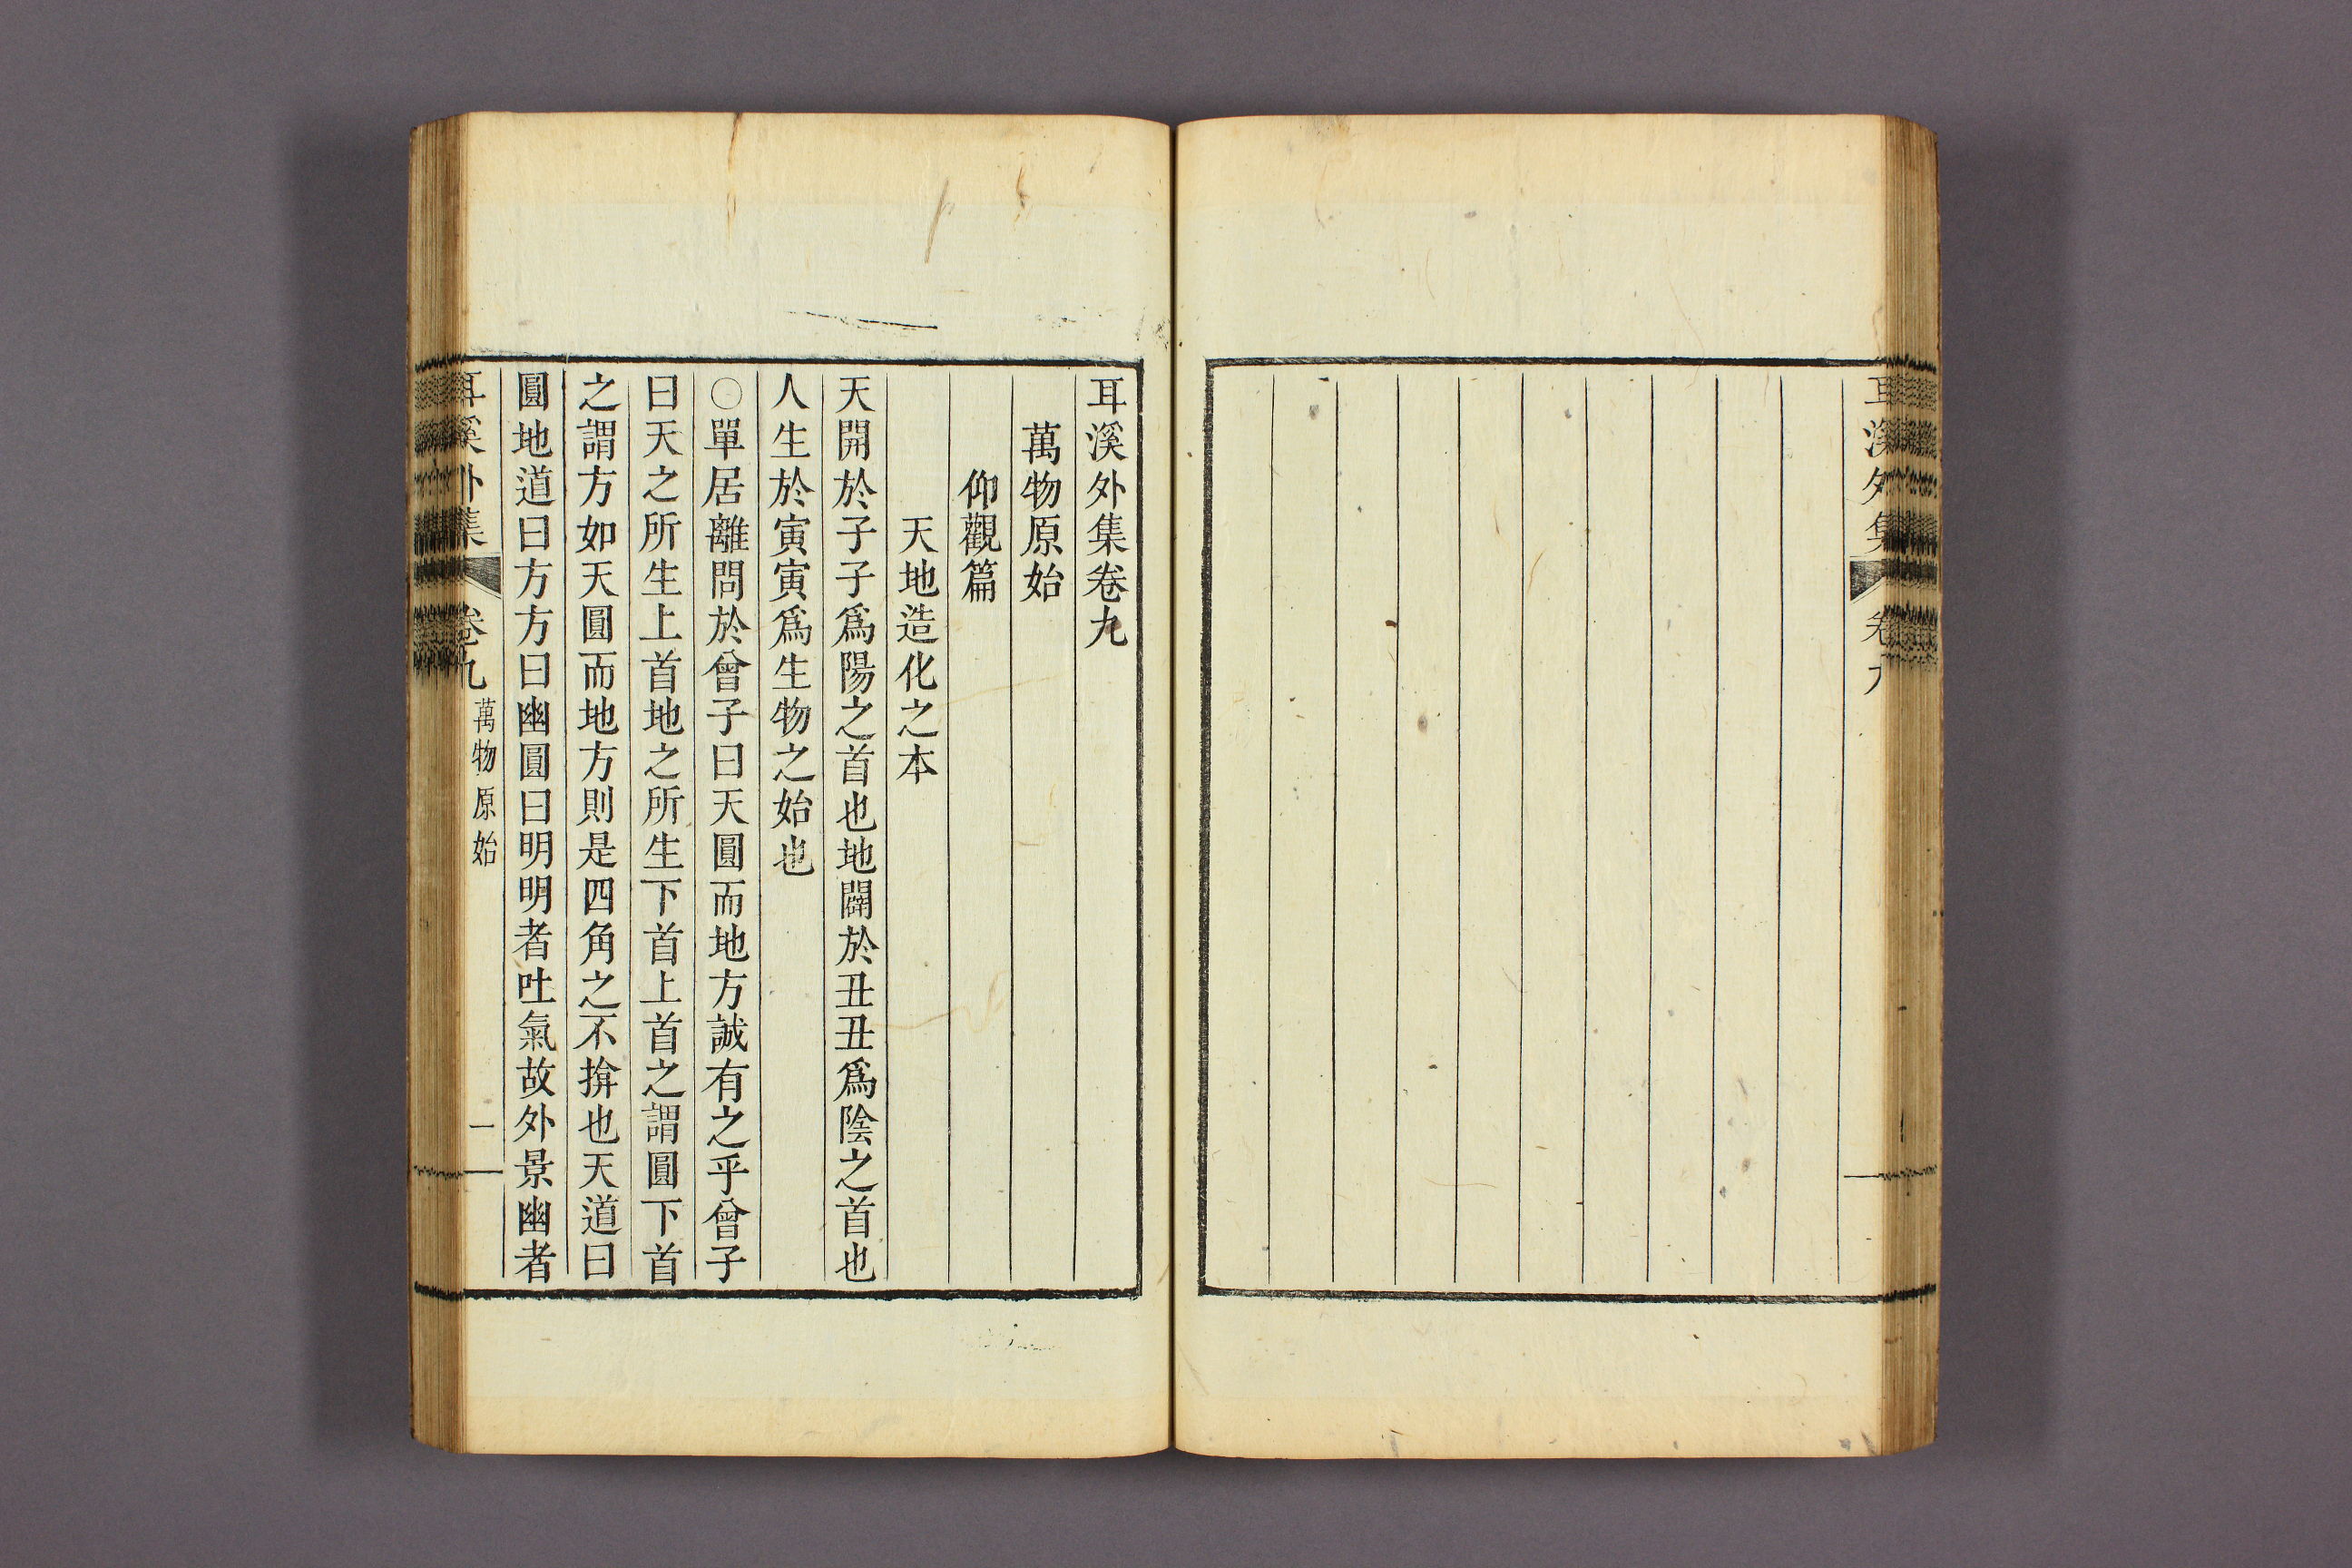 耳溪外集
耳溪外集卷九
萬物原始
仰觀篇
天地造化之本
天開於子子爲陽之首也地闢於丑丑爲陰之首也
人生於寅寅爲生物之始也
〇單居離問於曾子曰天圓而地方誠有之乎曾子
曰天之所生上首地之所生下首上首之謂圓下首
之謂方如天圓而地方則是四角之不揜也天道曰
圓地道曰方方曰幽圓曰明明者吐氣故外景幽者
耳溪外集 卷九 萬物原始 一